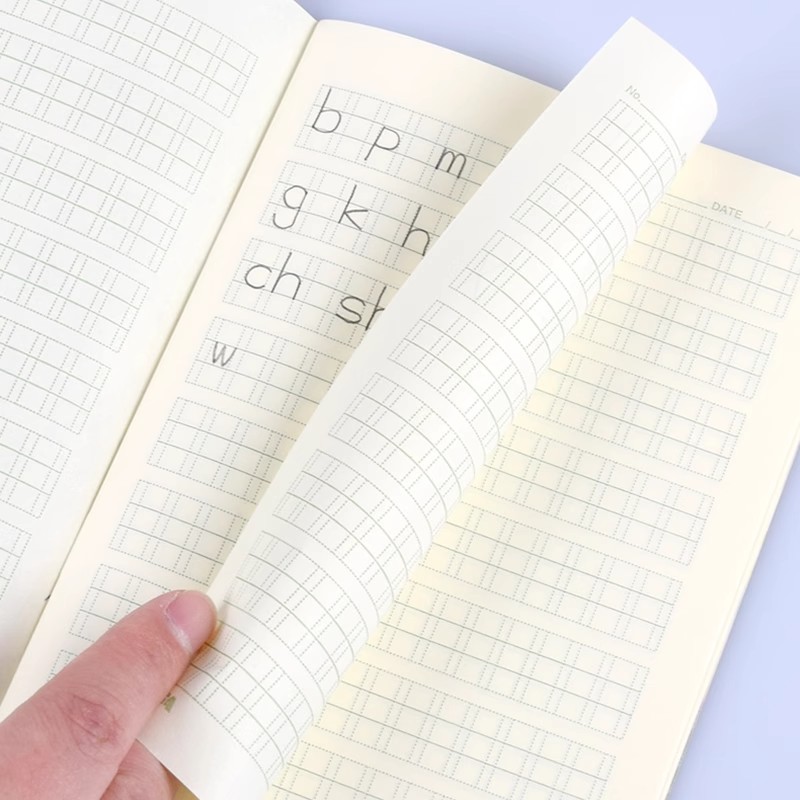 No.
DATE / /
b p m
g k h
ch sh
w